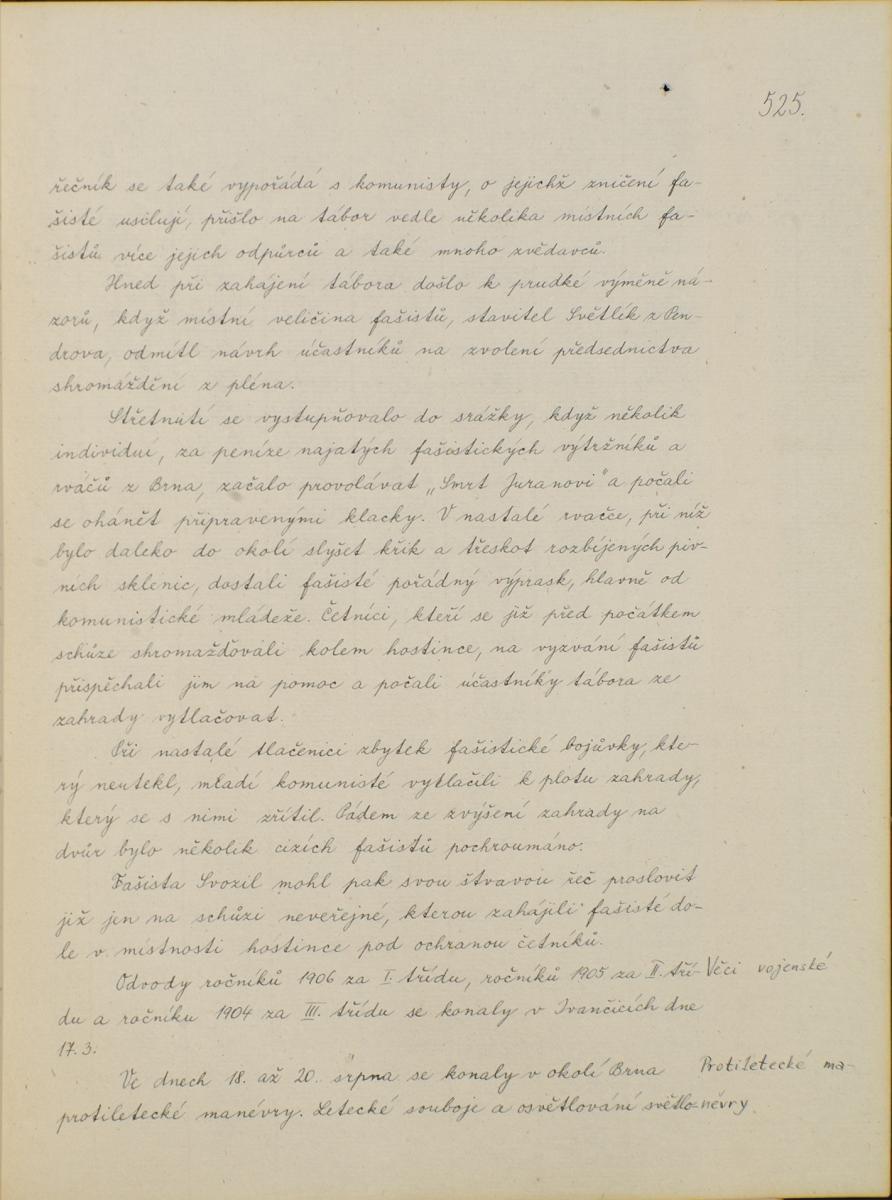 525.
řečník se také vypořádá s komunisty, o jejichž zničení fa-
šisté usilují, přišlo na tábor vedle několika místních fa-
šistů více jejich odpůrců a také mnoho zvědavců.
Hned při zahájení tábora došlo k prudké výměně ná-
zorů, když místní veličina fašistů, stavitel Světlík z Pen-
drova, odmítl návrh účastníků na zvolení předsednictva
shromáždění z pléna.
Střetnutí se vystupňovalo do srážky, když několik
individuí, za peníze najatých fašistických výtržníků a
rváčů z Brna, začalo provolávat „Smrt Juranovi" a počali
se ohánět připravenými klacky. V nastalé rvačce, při níž
bylo daleko do okolí slyšet křik a třeskot rozbíjených piv-
ních sklenic, dostali fašisté pořádný výprask, hlavně od
komunistické mládeže. Četníci, kteří se již před počátkem
schůze shromažďovali kolem hostince, na vyzvání fašistů
přispěchali jim na pomoc a počali účastníky tábora ze
zahrady vytlačovat.
Při nastalé tlačenici zbytek fašistické bojůvky, kte-
rý neutekl, mladí komunisté vytlačili k plotu zahrady,
který se s nimi zřítil. Pádem ze zvýšení zahrady na
dvůr bylo několik cizích fašistů pochroumáno.
Fašista Svozil mohl pak svou štvavou řeč proslovit
již jen na schůzi neveřejné, kterou zahájili fašisté do-
le v místnosti hostince pod ochranou četníků.
Odvody ročníků 1906 za I. třídu, ročníků 1905 za II. tří- Věci vojenské
du a ročníku 1904 za III. třídu se konaly v Ivančicích dne
17. 3.
Ve dnech 18. až 20. srpna se konaly v okolí Brna Protiletecké ma-
protiletecké manévry. Letecké souboje a osvětlování světlo- névry